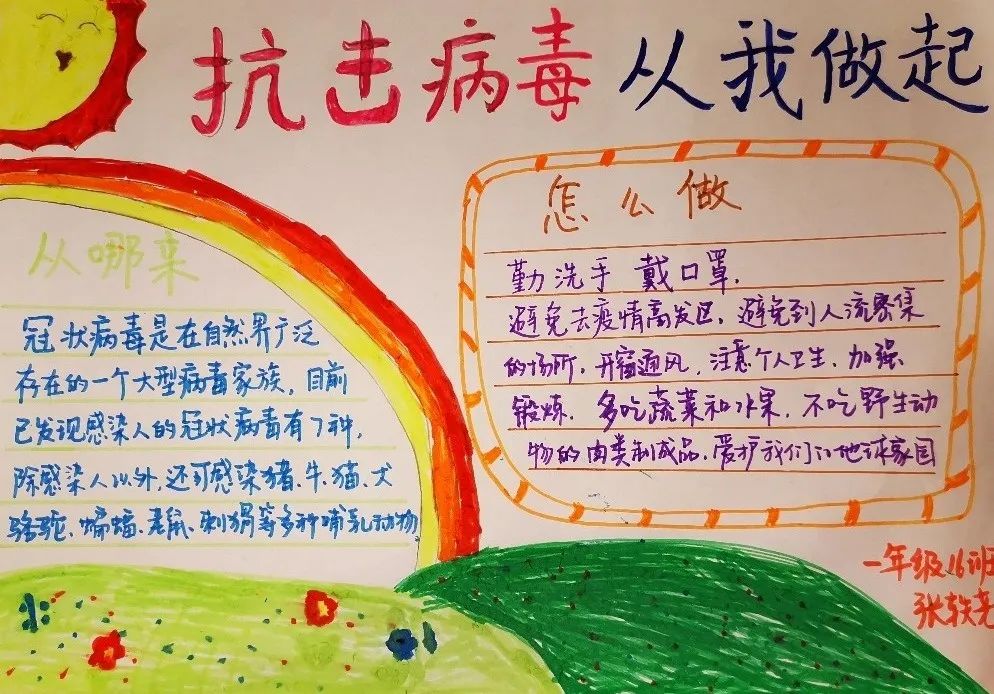 抗击病毒 从我做起
从哪来
冠状病毒是在自然界广泛
存在的一个大型病毒家族，目前
已发现感染人的冠状病毒有7种，
除感染人以外，还可感染猪、牛、猫、犬
骆驼、蝙蝠、老鼠、刺猬等多种哺乳动物
怎么做
勤洗手 戴口罩，
避免去疫情高发区，避免到人流密集
的场所，开窗通风，注意个人卫生，加强
锻炼，多吃蔬菜和水果，不吃野生动
物的肉类制成品，爱护我们的地球家园
一年级16班
张轶尧